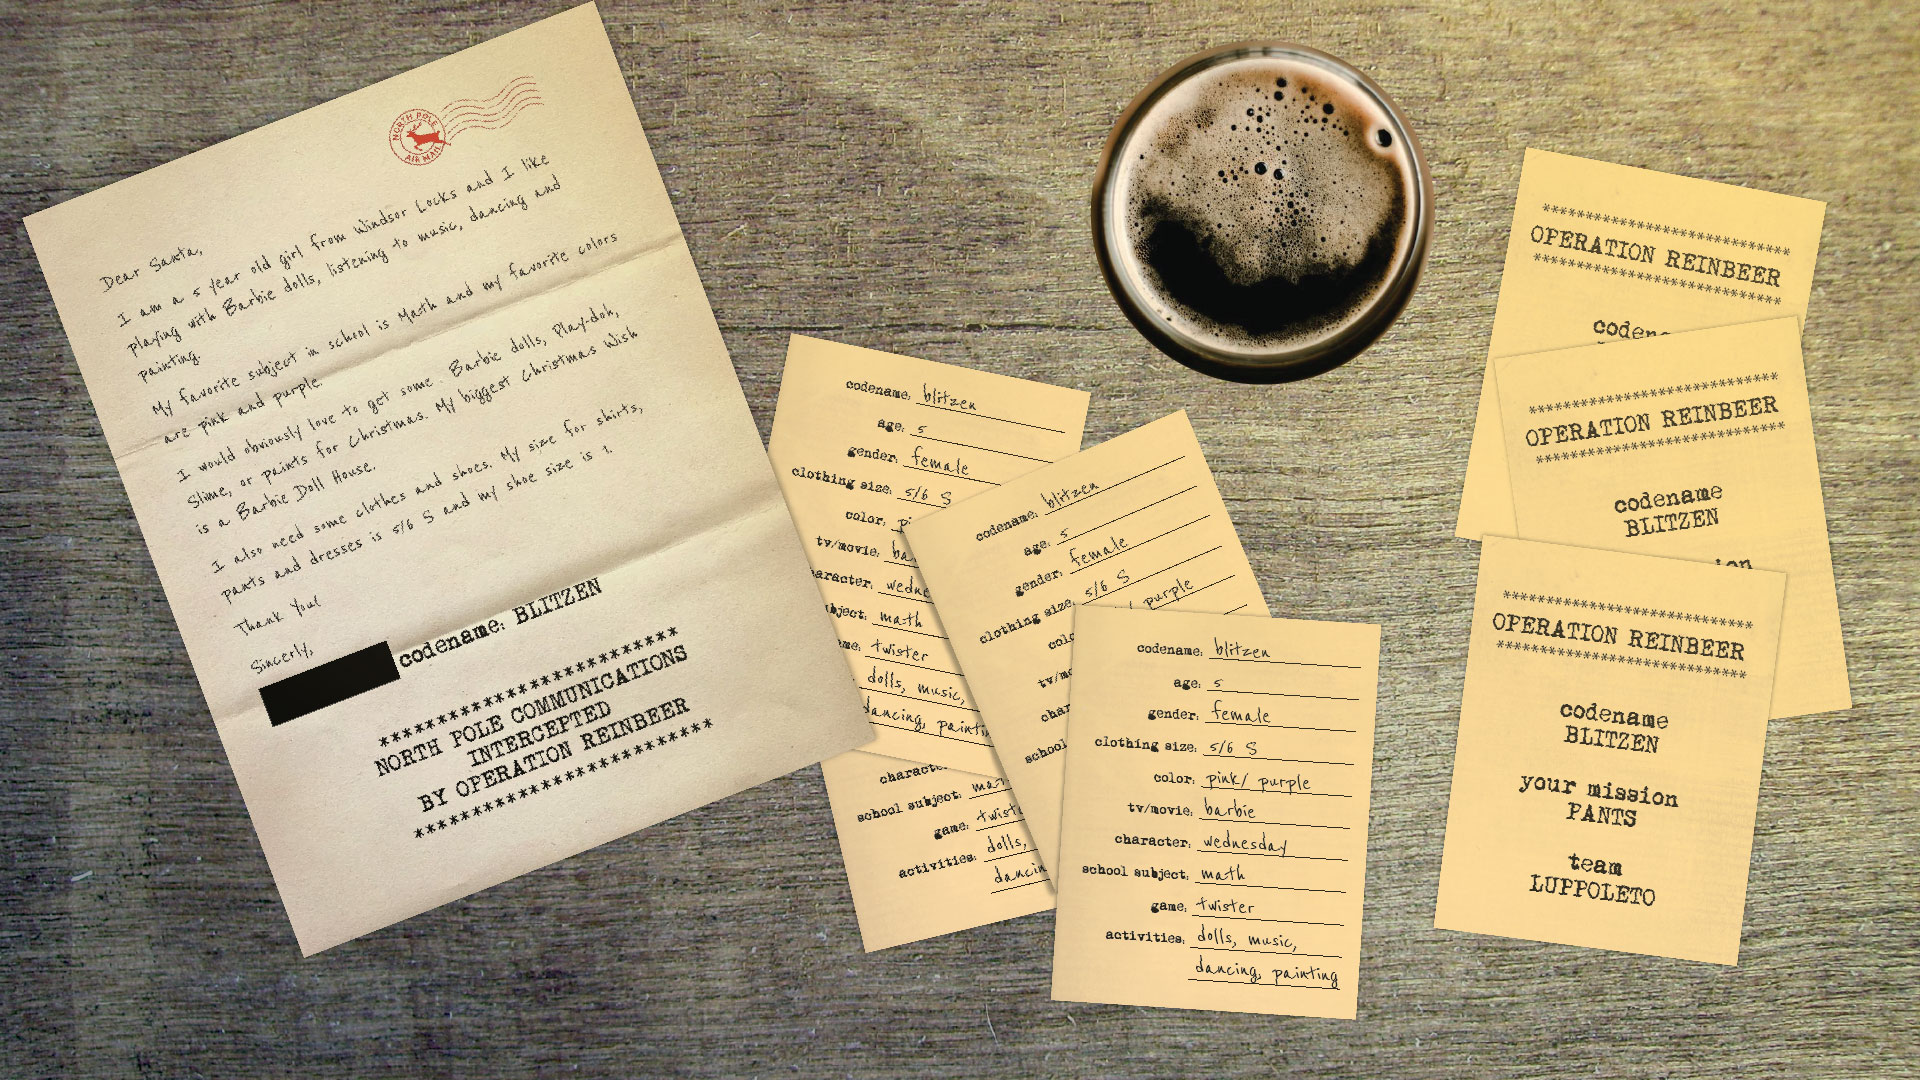 NORTH POLE
AIR MAIL
Dear Santa,
I am a 5 year old girl from Windsor Locks and I like
playing with Barbie dolls, listening to music, dancing and
painting.
My favorite subject in school is Math and my favorite colors
are pink and purple.
I would obviously love to get some Barbie dolls, Play-doh,
Slime, or paints for Christmas. My biggest Christmas Wish
is a Barbie Doll House.
I also need some clothes and shoes. My size for shirts,
pants and dresses is 5/6 S and my shoe size is 1.
Thank You!
Sincerly,
codename: BLITZEN
**************************
NORTH POLE COMMUNICATIONS
INTERCEPTED
BY OPERATION REINBEER
**************************
codename: blitzen
age: 5
gender: female
clothing size: 5/6 S
color:
tv/movie:
math
twister
dolls, music,
school subject:
game:
activities: dolls,
codename: blitzen
age: 5
gender: female
clothing size: 5/6 S
purple
school
codename: blitzen
age: 5
gender: female
clothing size: 5/6 S
color: pink/ purple
tv/movie: barbie
character: wednesday
school subject: math
game: twister
activities: dolls, music,
dancing, painting
****************************
OPERATION REINBEER
****************************
****************************
OPERATION REINBEER
****************************
codename
BLITZEN
****************************
OPERATION REINBEER
****************************
codename
BLITZEN
your mission
PANTS
team
LUPPOLETO